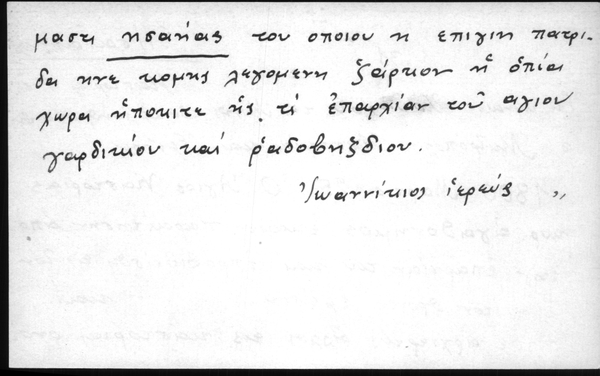 μαστι ησαήας του οποίου η επιγιη πατρι-
δα ηνε κομης λεγομενη ξάρκον ἥ ὁπία
χωρα ἥποκιτε ἥς τί ἐπαρχίαν τοῦ αγιου
γαρδικίου καί ῥαδοβηξδιου.
Ἰωαννίκιος ἱερεύς ,,